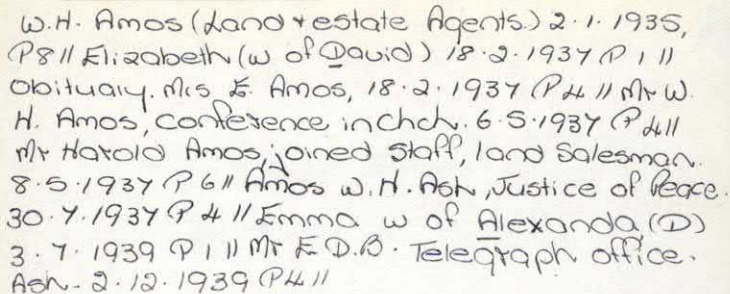 W.H. Amos (Land + estate Agents.) 2.1.1935,
P8 // Elizabeth (w of David) 18.2.1937 P 1 //
Obituary. Mrs E. Amos, 18.2.1937 P4 // Mr W.
H. Amos, conference in chch. 6.5.1937 P4 //
Mr Harold Amos, joined staff, land Salesman.
8.5.1937 P 6 // Amos W.H. Ash, Justice of Peace.
30.7.1937 P 4 // Emma w of Alexanda (D)
3.7.1939 P 1 // Mr E.D.B. Telegraph office.
Ash. 2.12.1939 P4 //